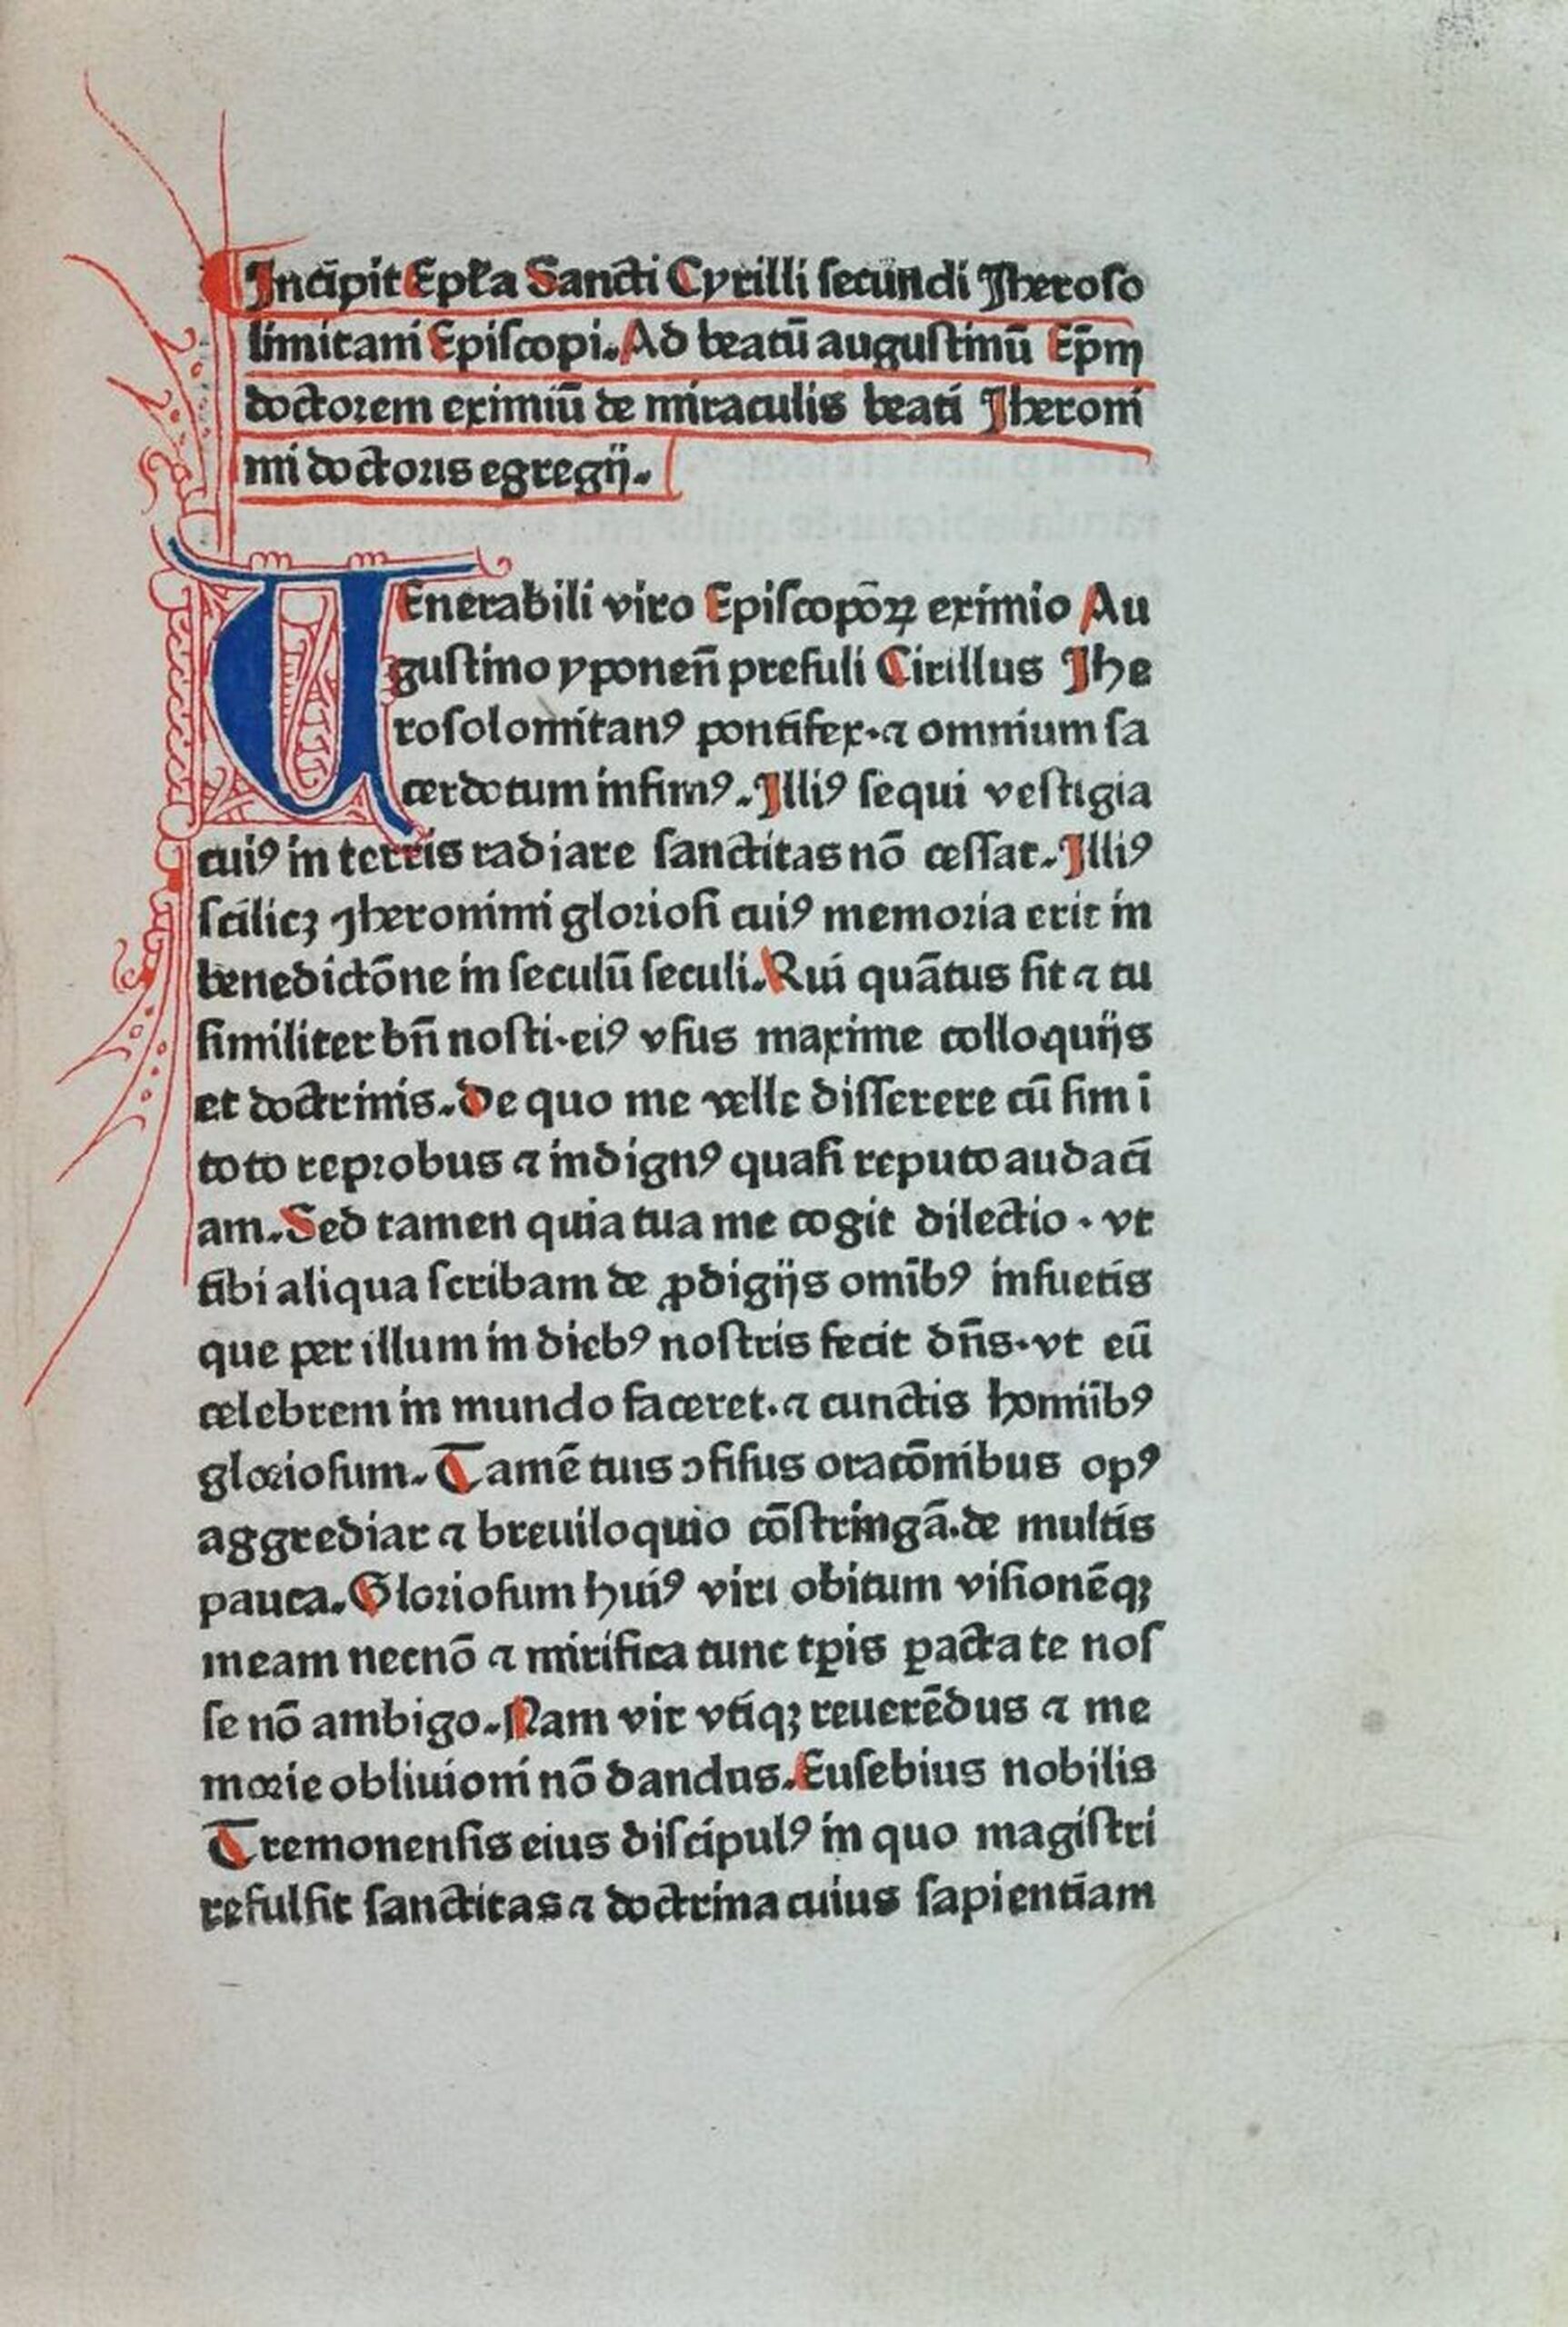 Incipit Epł̄a Sancti Cyrilli secundi Jheroso
limitani Episcopi. Ad beatū augustinū Ep̄m
doctorem eximiū de miraculis beati Jheroni
mi doctoris egregij.
VEnerabili viro Episcopōꝝ eximio Au
gustino yponen̄ presuli Cirillus Jhe
rosolomitanꝰ pontifex·⁊ omnium sa
cerdotum infimꝰ. Illiꝰ sequi vestigia
cuiꝰ in terris radiare sanctitas nō cessat. Illiꝰ
scilicꝫ Jheronimi gloriosi cuiꝰ memoria erit in
benedictōne in seculū seculi. Qui quātus sit ⁊ tu
similiter bn̄ nosti·eiꝰ vsus maxime colloquijs
et doctrinis. De quo me velle disserere cū sim ī
toto reprobus ⁊ indignꝰ quasi reputo audaci
am. Sed tamen quia tua me cogit dilectio · vt
tibi aliqua scribam de ꝓdigijs omībꝰ insuetis
que per illum in diebꝰ nostris fecit dn̄s·vt eū
celebrem in mundo faceret·⁊ cunctis homīibꝰ
gloriosum. Tamē tuis ↄfisus oracōnibus opꝰ
aggrediar ⁊ breuiloquio cōstringā·de multis
pauca. Gloriosum huiꝰ viri obitum visionēqꝫ
meam necnō ⁊ mirifica tunc tꝑis ꝑacta te nos
se nō ambigo. Nam vir vtiqꝫ reuerēdus ⁊ me
morie obliuioni nō dandus. Eusebius nobilis
Tremonensis eius discipulꝰ in quo magistri
refulsit sanctitas ⁊ doctrina cuius sapientiam